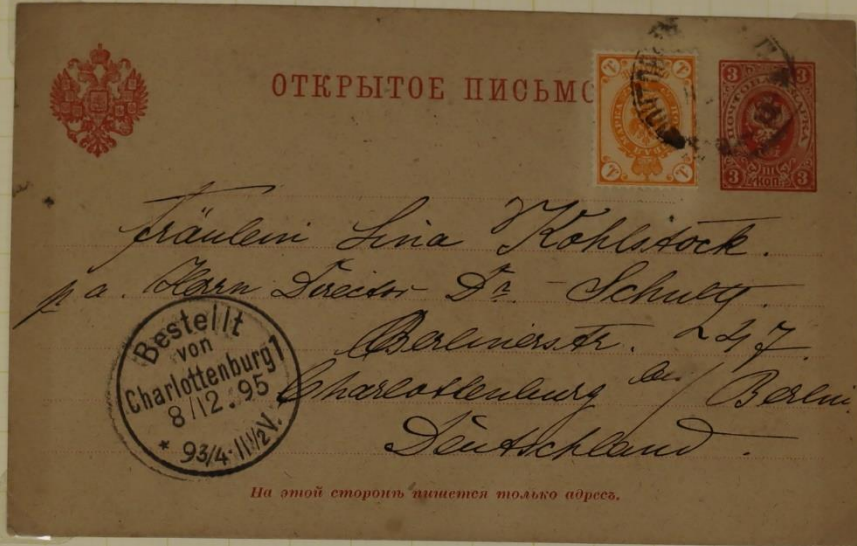 ОТКРЫТОЕ ПИСЬМО
3 3
ПОЧТОВАЯ МАРКА
3 КОП. 3
1 1
1 1
Fräulein Lina Kohlstock.
p a. Herrn Director Dr. Schultz.
Berlinerstr.
Charlottenburg bei / Berlin
Deutschland.
Bestellt
von
Charlottenburg 1
8/12.95
* 93/4-11 1/2V.
На этой сторонѣ пишется только адресъ.